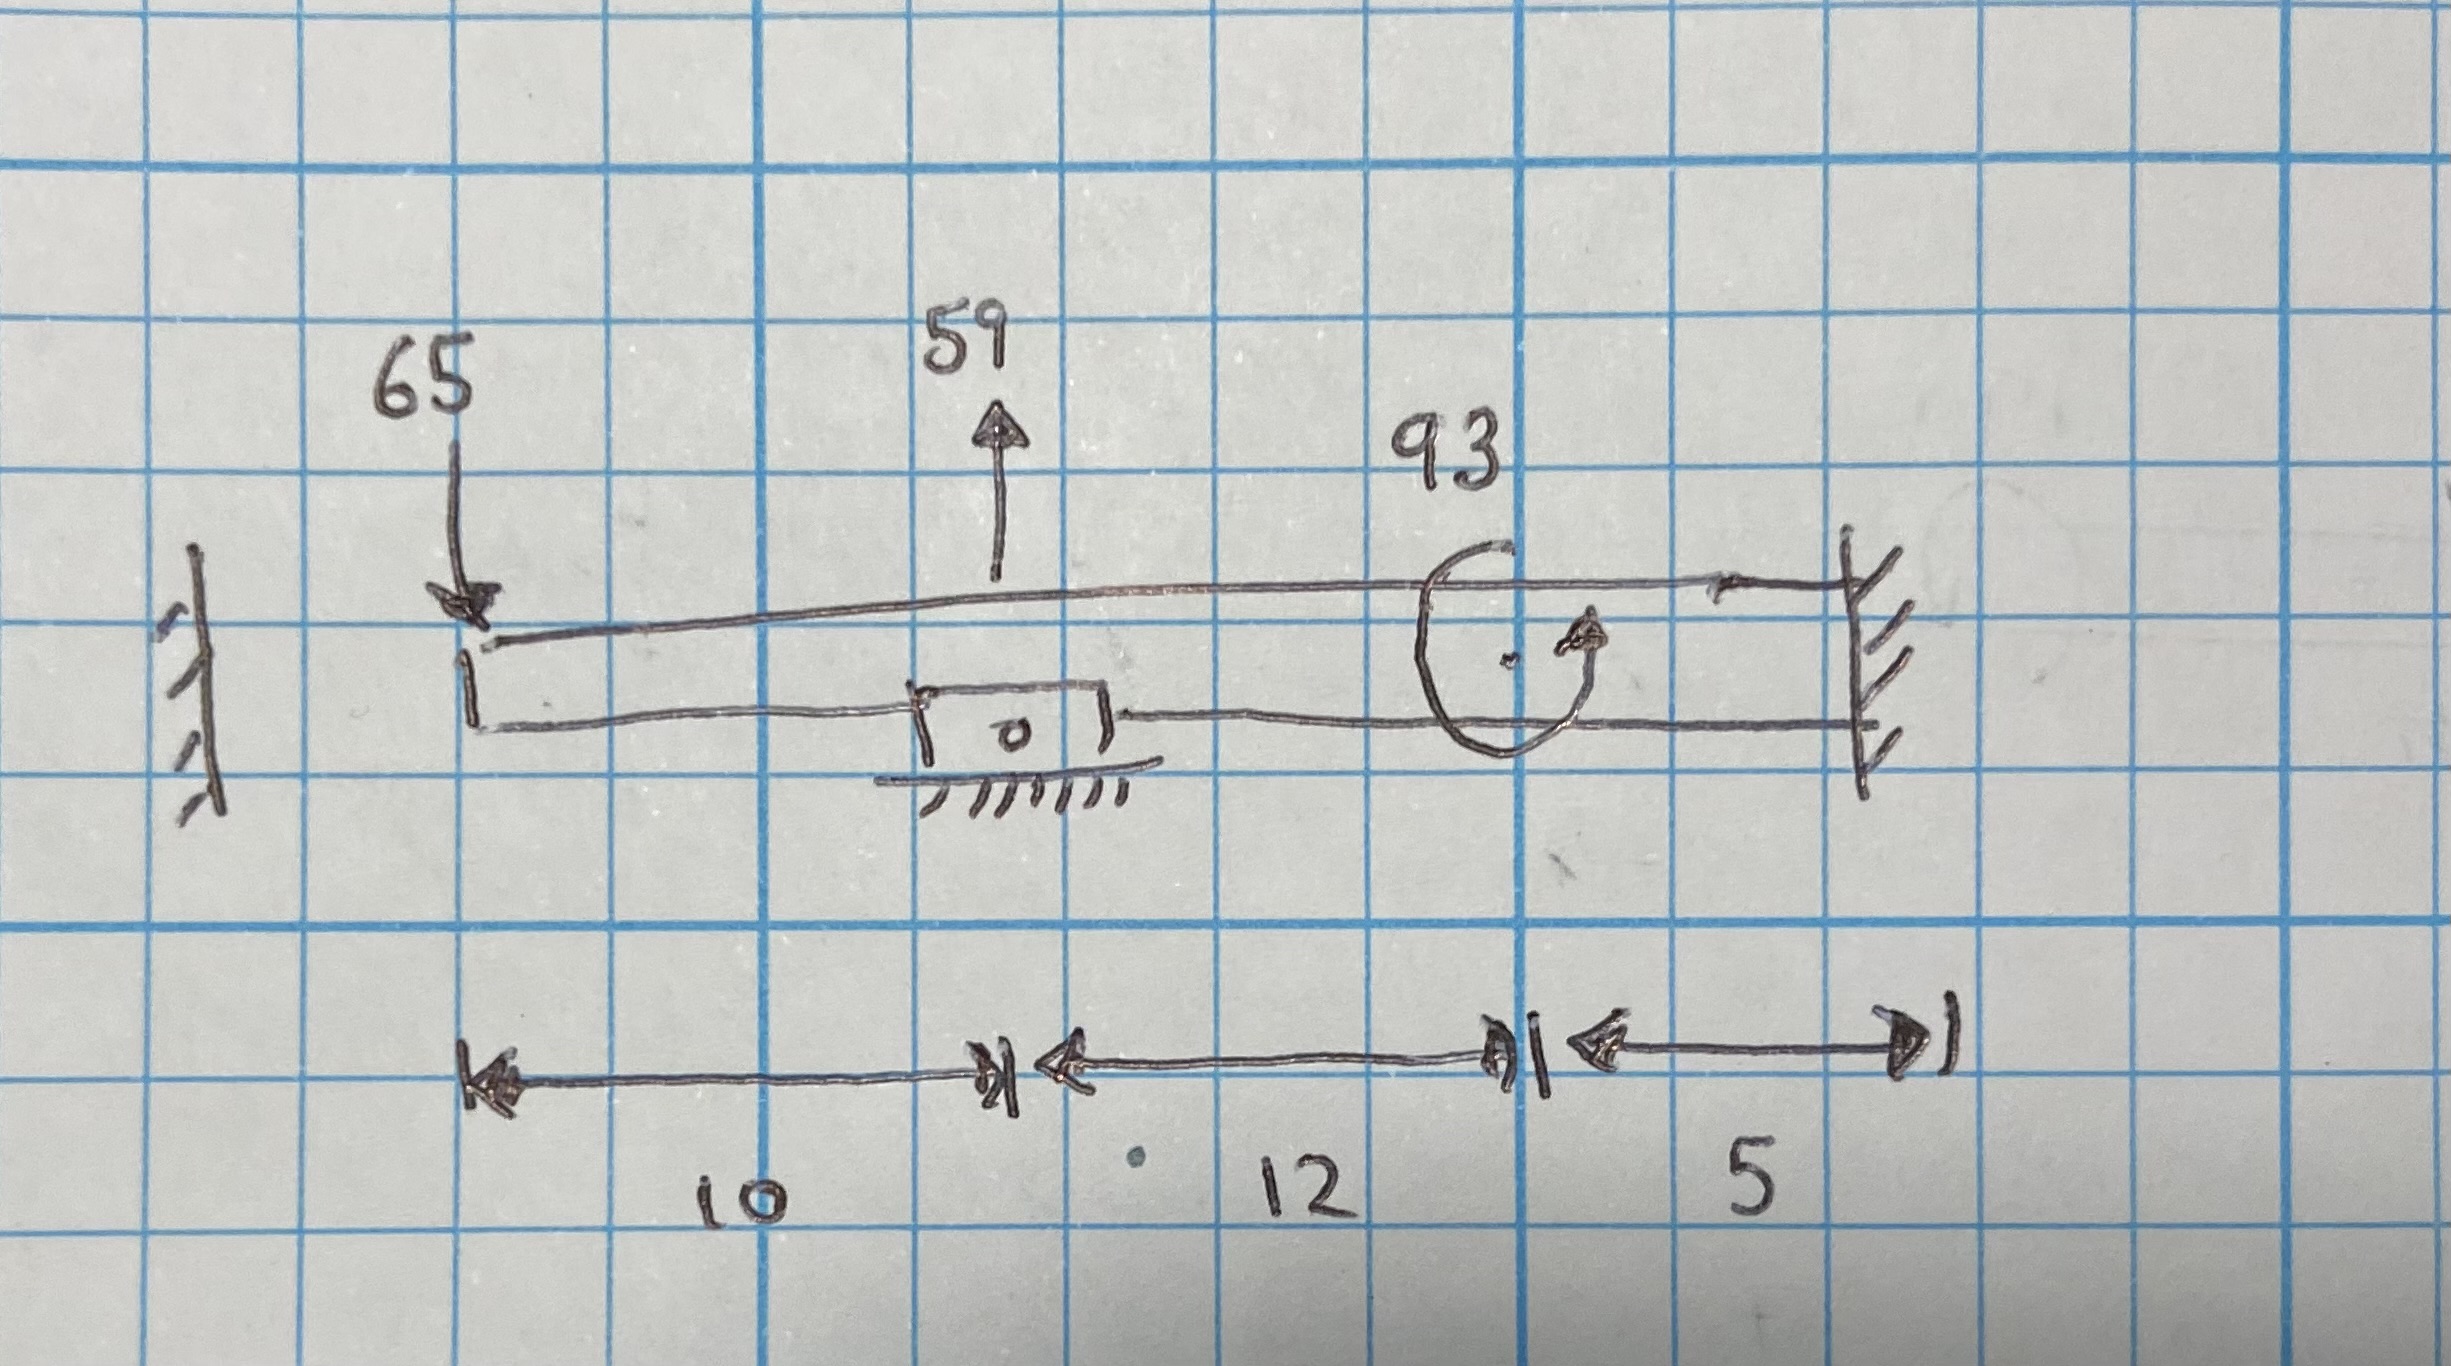 65
59
93
10
12
5